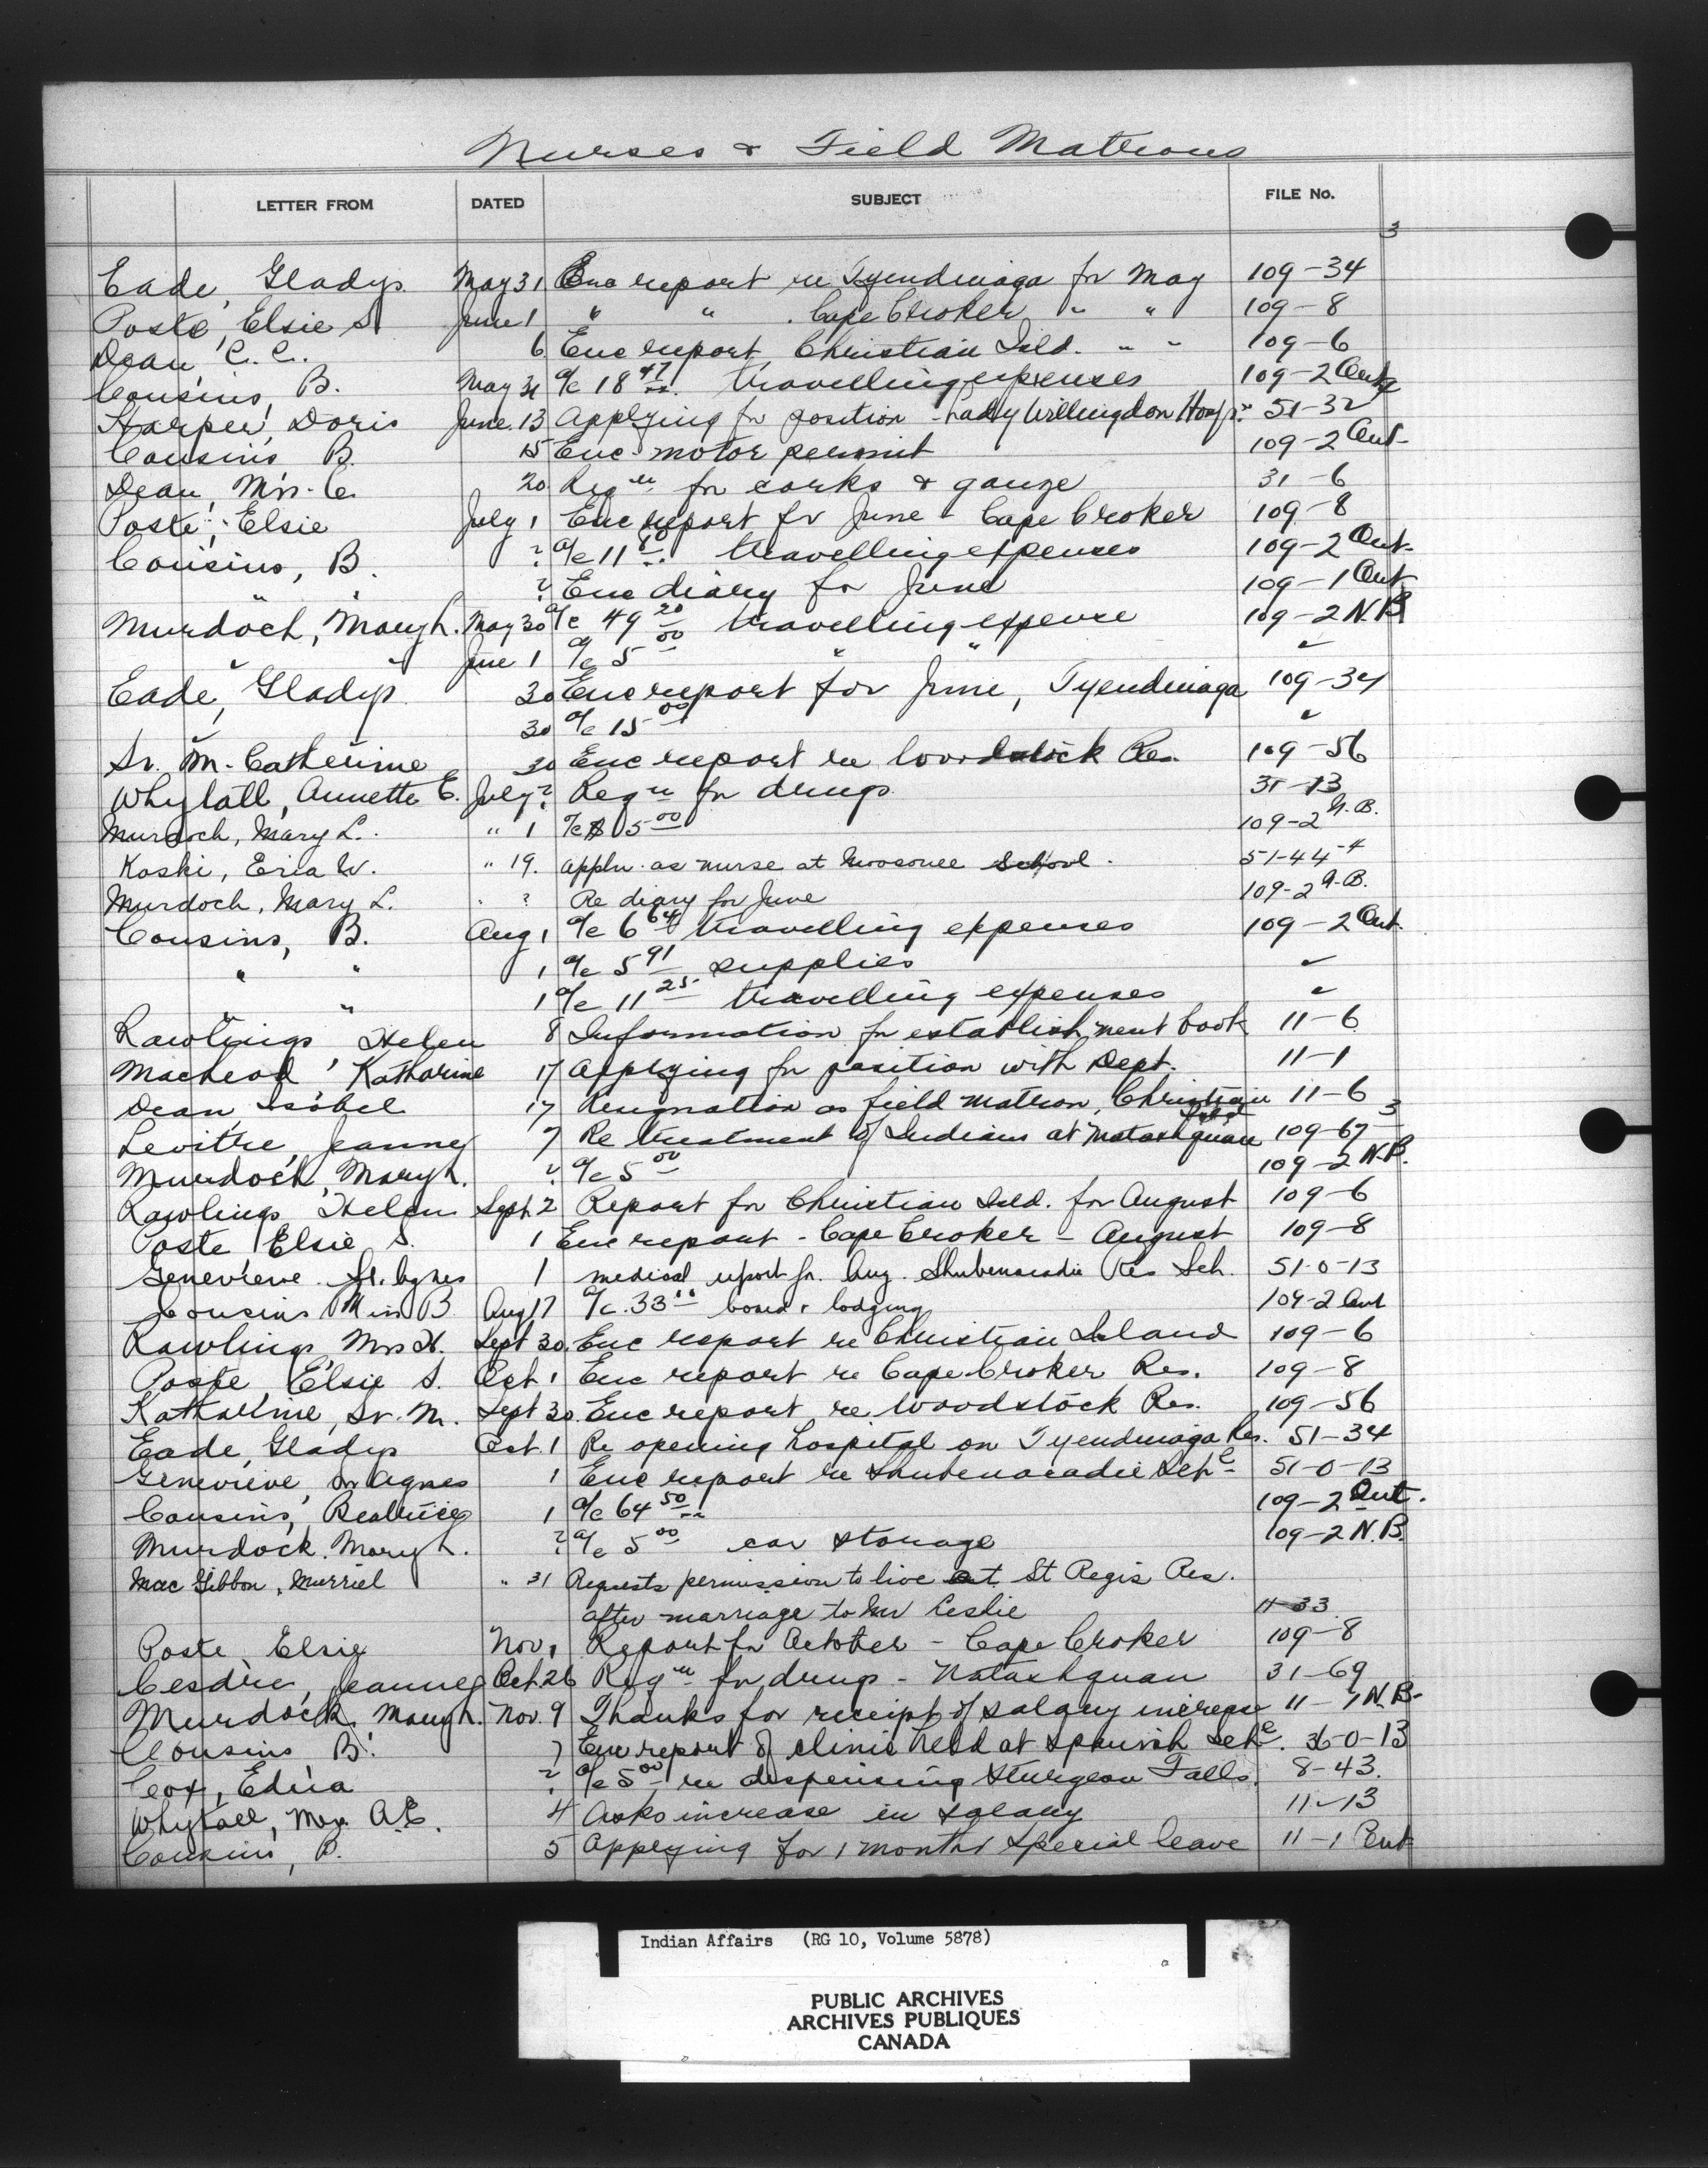 Nurses & Field Matrons
LETTER FROM DATED SUBJECT FILE No.
3
Eade, Gladys. May 31 Enc report re Tyendinaga for May 109-34
Poste, Elsie S. June 1 " " . Cape Croker " " 109-8
Dean, C. C. 6 Enc report, Christian Isld. " " 109-6
Cousins, B. May 31 a/c 18 47 travelling expenses 109-2 Ont
Harper, Doris June 13 Applying for position - Lady Willingdon Hosp. 51-32
Cousins B. 15 Enc. motor permit 109-2 Ont.
Dean, Mrs. C. 20 Reqn for corks & gauze 31-6
Poste, Elsie July 1 Enc report for June - Cape Croker 109-8
Cousins, B. ? a/c 11 travelling expenses 109-2 Ont.
" " ? Enc diary for June 109-1 Ont
Murdoch, Mary L. May 30 a/c 49 20 travelling expense 109-2 N.B
" " June 1 a/c 5 00 " " "
Eade, Gladys 30 Enc report for June, Tyendinaga 109-34
" 30 a/c 15 00 "
Sr. M. Catherine 30 Enc report re Woodstock Res. 109-56
Whytall, Annette E. July ? Reqn for drugs 31-13
Murdoch, Mary L. " 1 a/c $ 5 00 109-2 N.B.
Koski, Eria W. " 19. Appln. as nurse at Moosonee School. 51-44-4
Murdoch, Mary L. " ? Re diary for June 109-2 N.B.
Cousins, B. Aug 1 a/c 6 64 travelling expenses 109-2 Ont.
" " 1 a/c 5 91 supplies "
" " 1 a/c 11 25 travelling expenses "
Rawlings, Helen 8 Information for establishment book 11-6
MacLeod, Katharine 17 Applying for position with Dept. 11-1
Dean, Isobel 17 Resignation as field matron, Christian Isld 11-6
3
Levitre, Jeanne 7 Re treatment of Indians at Natashquan 109-67
Murdoch, Mary L. ? a/c 5 00 109-2 N.B.
Rawlings, Helen Sept. 2 Report for Christian Isld. for August 109-6
Poste Elsie S. 1 Enc report - Cape Croker - August 109-8
Genevieve Sr. Agnes 1 medical report for Aug. Shubenacadie Res Sch. 51-0-13
Cousins Miss B. Aug 17 a/c. 33 board & lodging 109-2 Ont
Rawlings, Mrs H. Sept 30. Enc report re Christian Island 109-6
Poste, Elsie S. Oct. 1 Enc report re Cape Croker Res. 109-8
Katharine, Sr. M. Sept 30. Enc report re Woodstock Res. 109-56
Eade, Gladys Oct. 1 Re opening hospital on Tyendinaga Res. 51-34
Genevieve, Sr Agnes 1 Enc report re Shubenacadie Schl 51-0-13
Cousins, Beatrice 1 a/c 64 50 109-2 Ont.
Murdock. Mary L. ? a/c 5 00 car storage 109-2 N.B.
MacGibbon, Murriel " 31 Requests permission to live at St Regis Res.
after marriage to Mr Leslie 11-33
Poste, Elsie Nov. 1 Report for October - Cape Croker 109-8
Jeanne Oct. 26 Reqn for drugs - Natashquan 31-69
Murdock, Mary L. Nov. 9 Thanks for receipt of salary increase 11-1 N.B.
Cousins B. 7 Enc report of clinic held at Spanish Schl. 36-0-13
Cox, Edna ? a/c 5 00 re dispensing Sturgeon Falls. 8-43.
Whytall, A.E. 4 Asks increase in salary 11-13
Cousins, B. 5 Applying for 1 months special leave 11-1 Ont
Indian Affairs (RG 10, Volume 5878)
PUBLIC ARCHIVES
ARCHIVES PUBLIQUES
CANADA